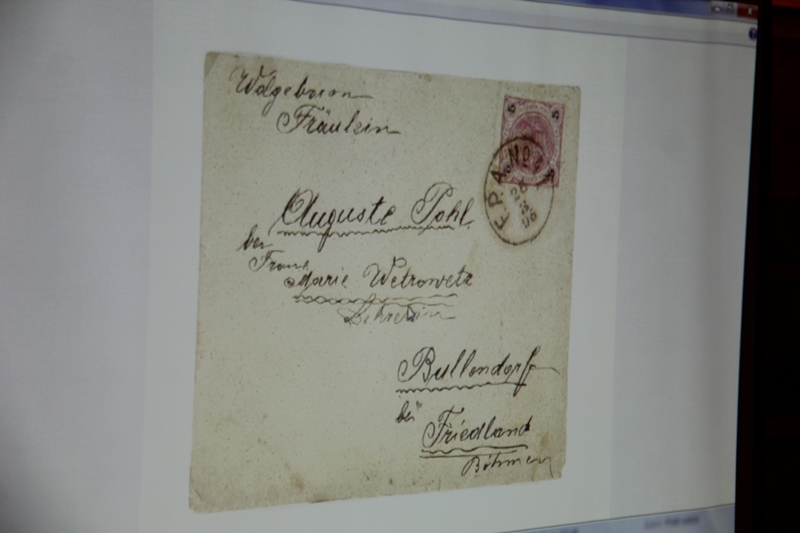 Wolgeboren
Fräulein
Auguste Pohl
bei
Frau
Marie Wetrowetz
Lehrerin
Bullendorf
bei
Friedland
Böhmen
5 5